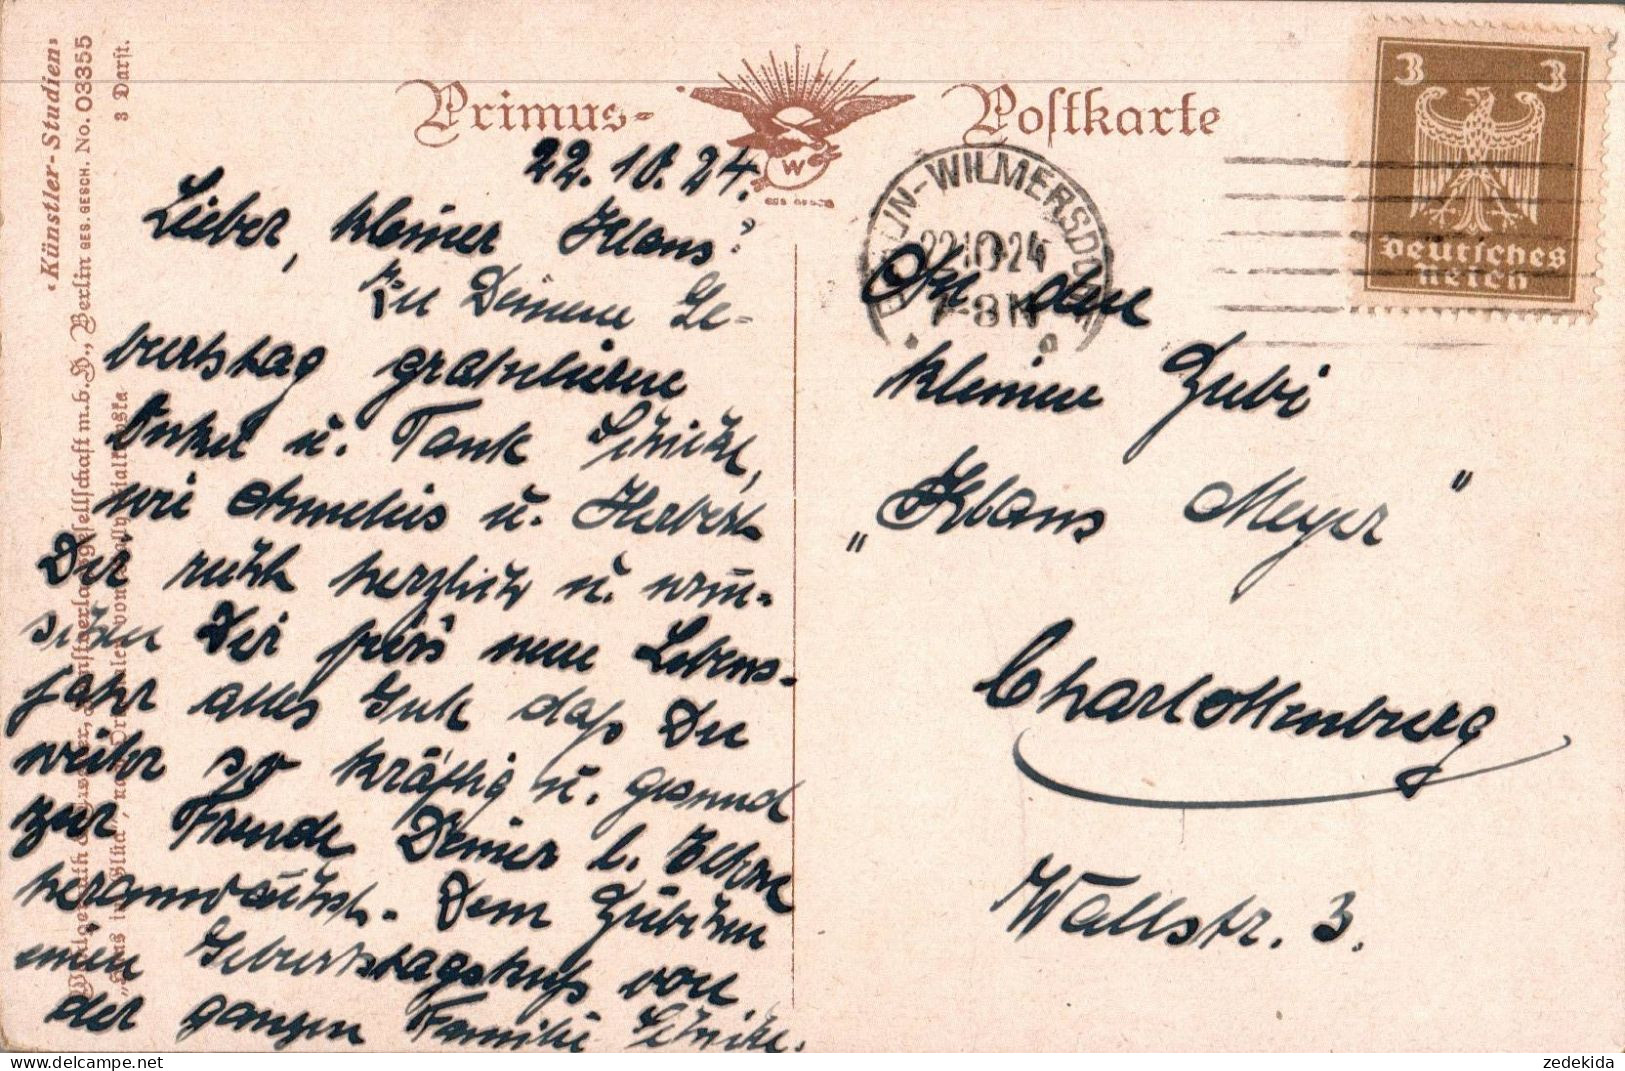 Primus-Postkarte
22.10.24.
Lieber, kleiner Klaus!
Zu Deinem Ge-
burtstag gratulieren
Onkel u. Tante Schicke,
wie Annelies u. Herbert
Dir recht herzlich u. wün-
schen Dir für's neue Lebens-
jahr alles Gute daß Du
weiter so kräftig u. gesund
zur Freude Deiner l. Eltern
heranwächst. Dem Zubichen
einen Geburtstagskuß von
der ganzen Familie Schicke.
An den
kleinen Zubi
„Klaus Meyer"
Charlottenburg
Wallstr. 3.
BERLIN-WILMERSDORF
22.10.24
7-8 N
3 3
Deutsches
Reich
W
GES. GESCH
«Künstler-Studien»
Berlin GES. GESCH. No. 03355
3 Darst.
zedekida